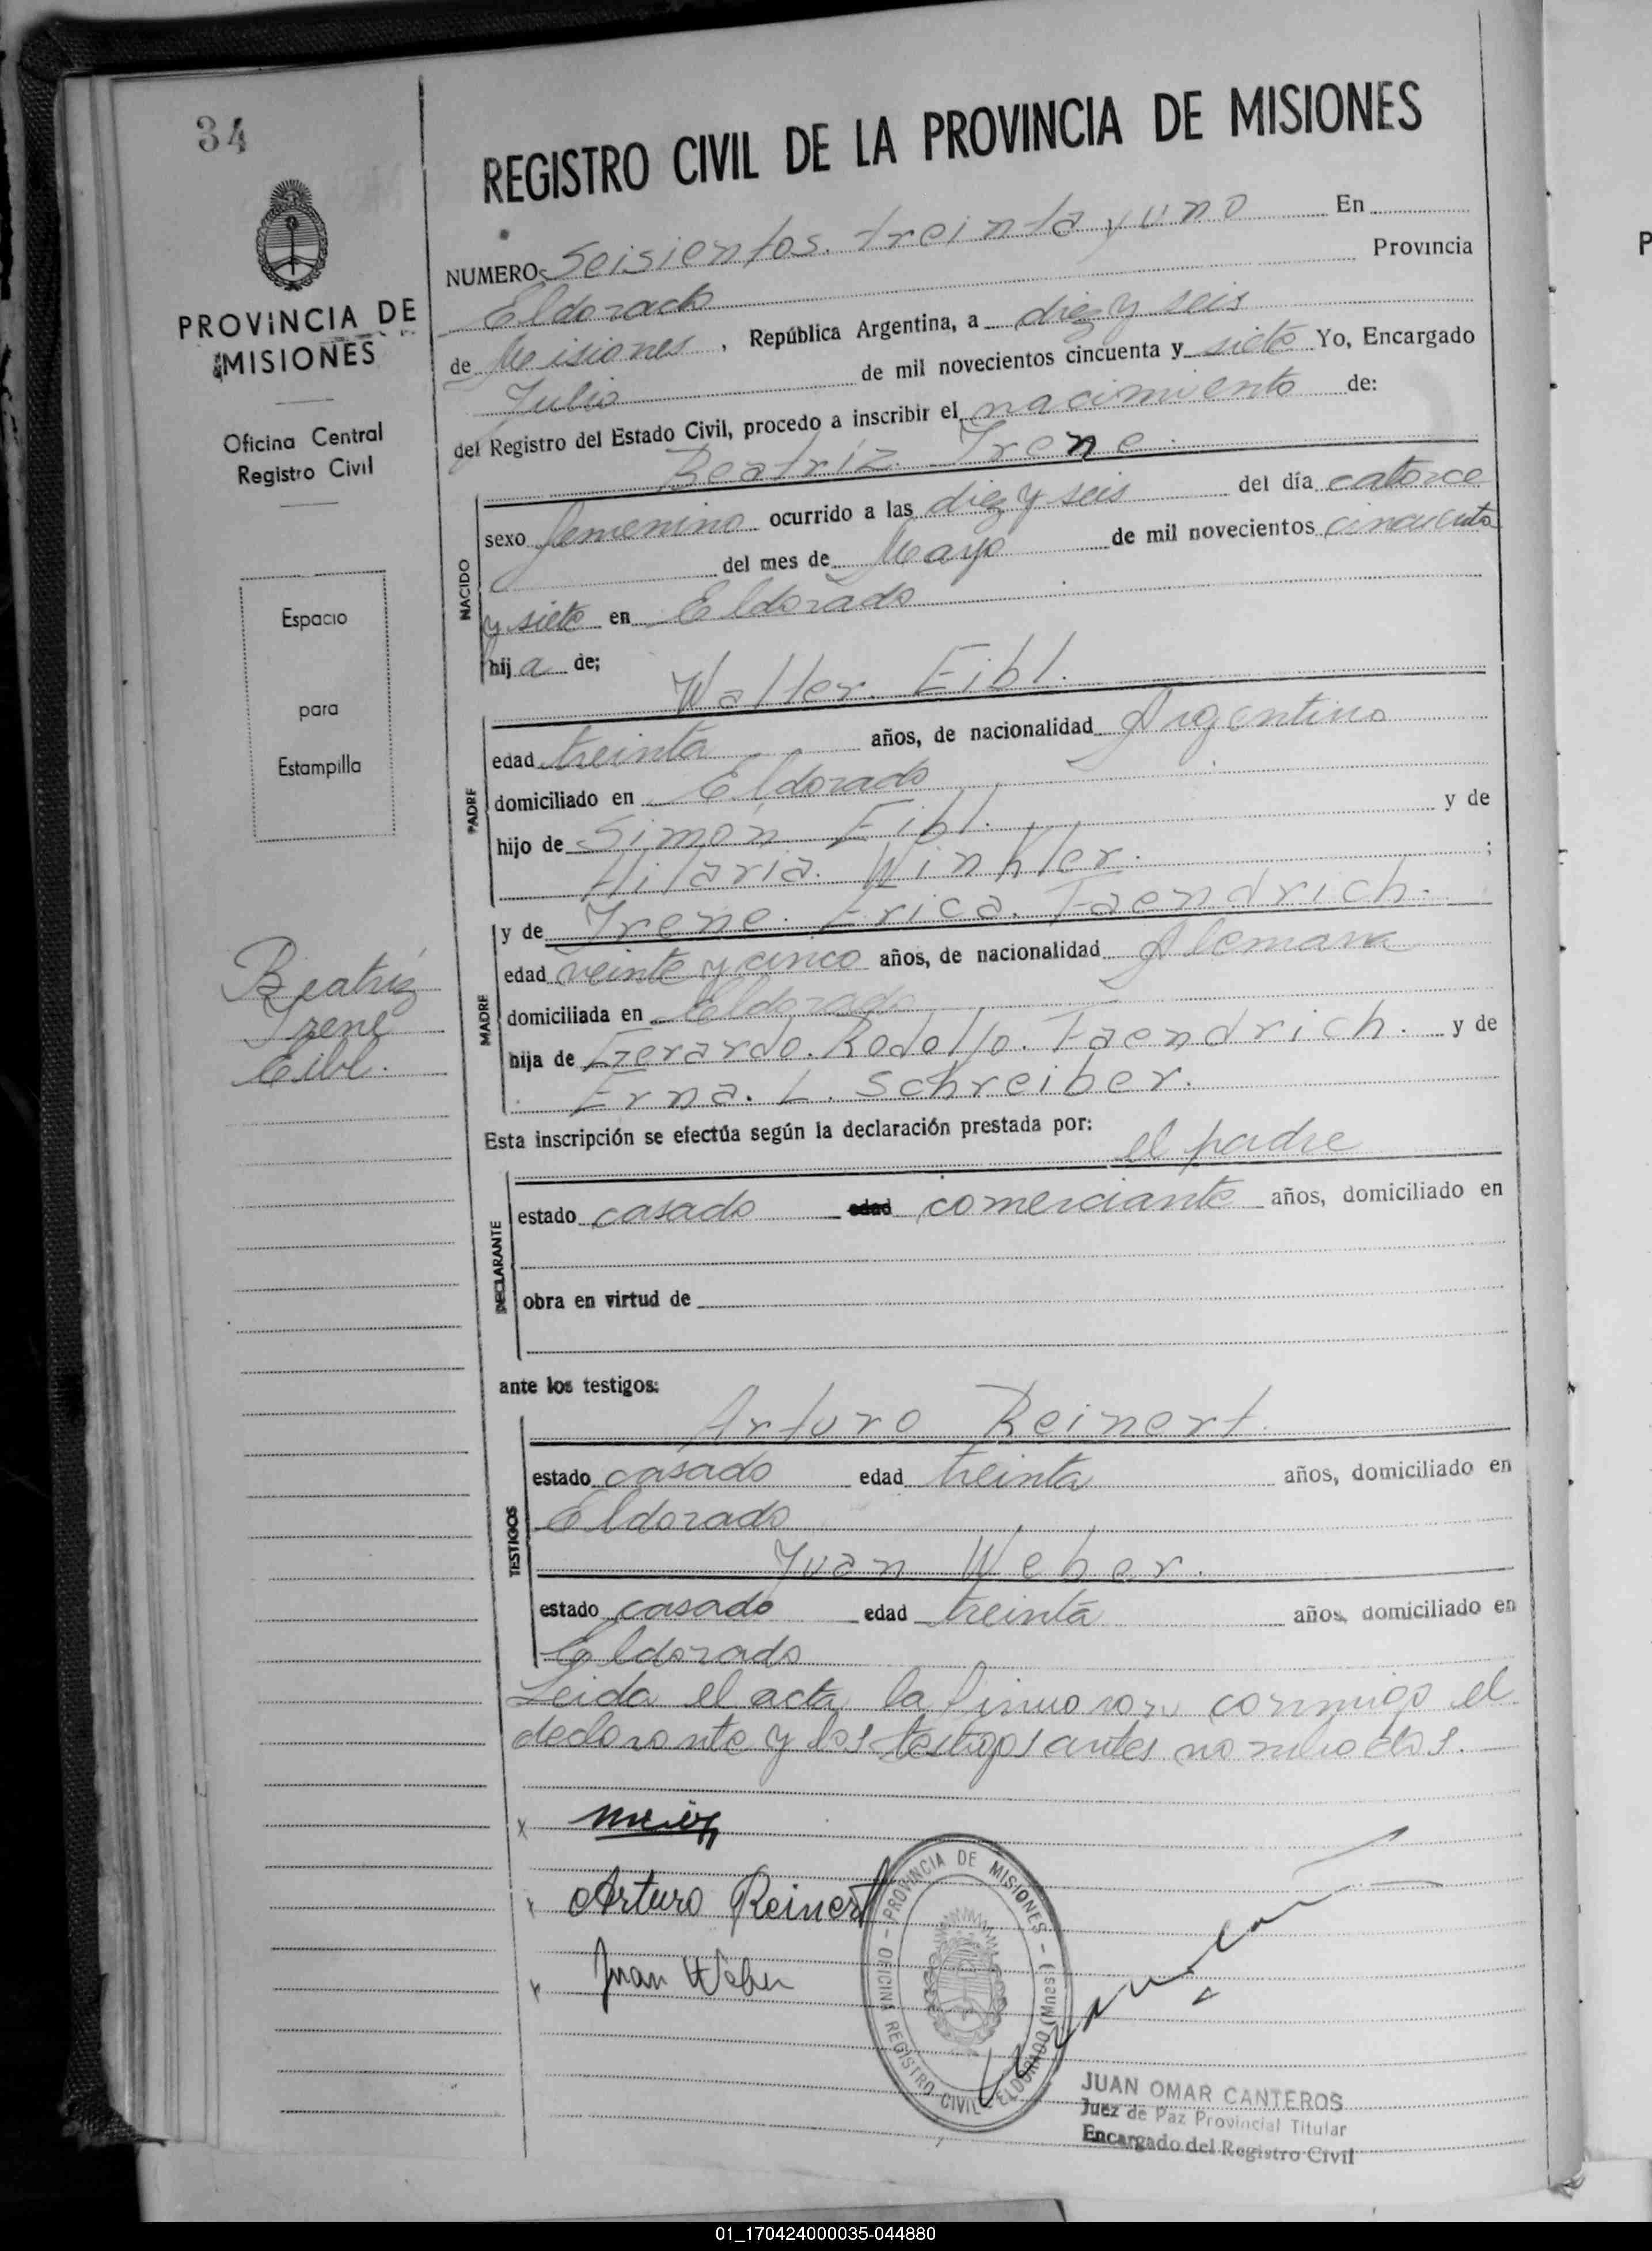 34
PROVINCIA DE
MISIONES
Oficina Central
Registro Civil
Espacio
para
Estampilla
Beatriz
Irene
Eibl.
REGISTRO CIVIL DE LA PROVINCIA DE MISIONES
NUMERO: Seisientos. treinta y uno En
Eldorado Provincia
de Misiones, República Argentina, a diez y seis
Julio de mil novecientos cincuenta y siete Yo, Encargado
del Registro del Estado Civil, procedo a inscribir el nacimiento de:
Beatriz. Irene.
NACIDO
sexo femenino ocurrido a las diez y seis del día catorce
del mes de Mayo de mil novecientos cincuenta
y siete en Eldorado
hija de;
Walter. Eibl.
PADRE
edad treinta años, de nacionalidad Argentino
domiciliado en Eldorado
hijo de Simón Eibl. y de
Hilaria. Winkler. ;
y de Irene. Erica. Faendrich.
MADRE
edad veinte y cinco años, de nacionalidad Alemana
domiciliada en Eldorado
hija de Gerardo. Rodolfo. Faendrich. y de
Erna. L. Schreiber.
Esta inscripción se efectúa según la declaración prestada por:
el padre
DECLARANTE
estado casado edad comerciante años, domiciliado en
obra en virtud de
ante los testigos:
Arturo Reinert.
TESTIGOS
estado casado edad treinta años, domiciliado en
Eldorado
Juan Weber.
estado casado edad treinta años, domiciliado en
Eldorado
Leida el acta la firmaron conmigo el
declarante y los testigos antes nombrados.
x
x Arturo Reinert
x Juan Weber
PROVINCIA DE MISIONES - OFICINA REGISTRO CIVIL - ELDORADO (Mnes)
JUAN OMAR CANTEROS
Juez de Paz Provincial Titular
Encargado del Registro Civil
01_170424000035-044880